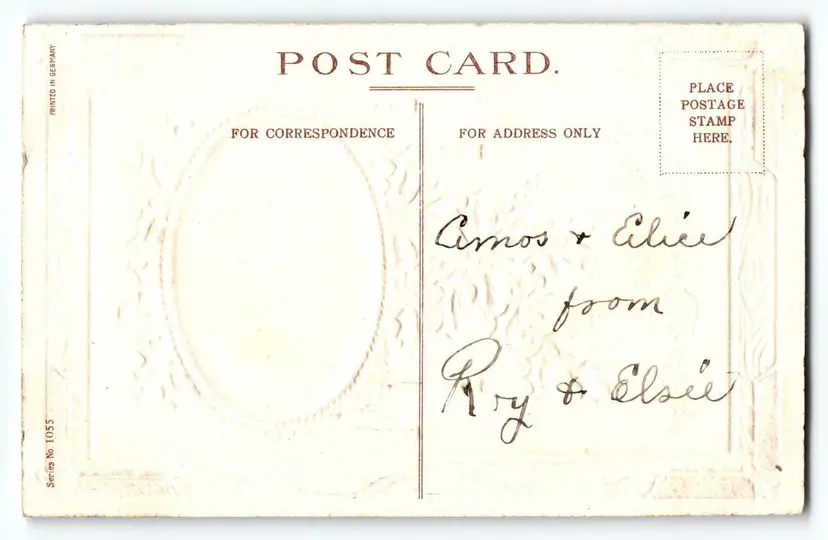 PRINTED IN GERMANY
POST CARD.
FOR CORRESPONDENCE
FOR ADDRESS ONLY
PLACE
POSTAGE
STAMP
HERE.
Amos + Elsie
from
Roy & Elsie
Series No. 1055